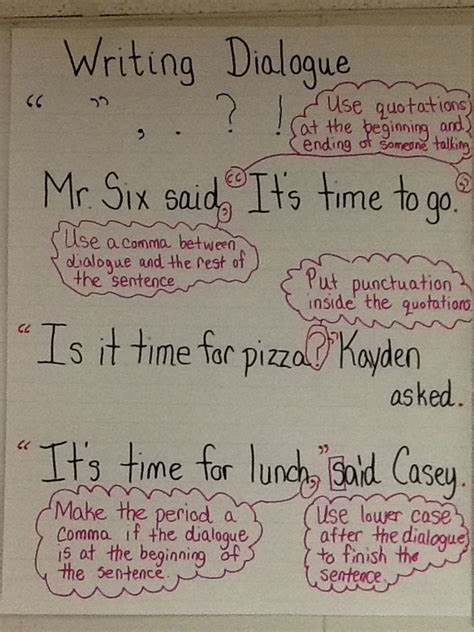 Writing Dialogue
“ ” , . ? !
Use quotations
at the beginning and
ending of someone talking
Mr. Six said, “It's time to go.”
Use a comma between
dialogue and the rest of
the sentence
Put punctuation
inside the quotations
“Is it time for pizza?” Kayden
asked.
“It's time for lunch,” said Casey.
Make the period a
comma if the dialogue
is at the beginning of
the sentence.
Use lower case
after the dialogue
to finish the
sentence.